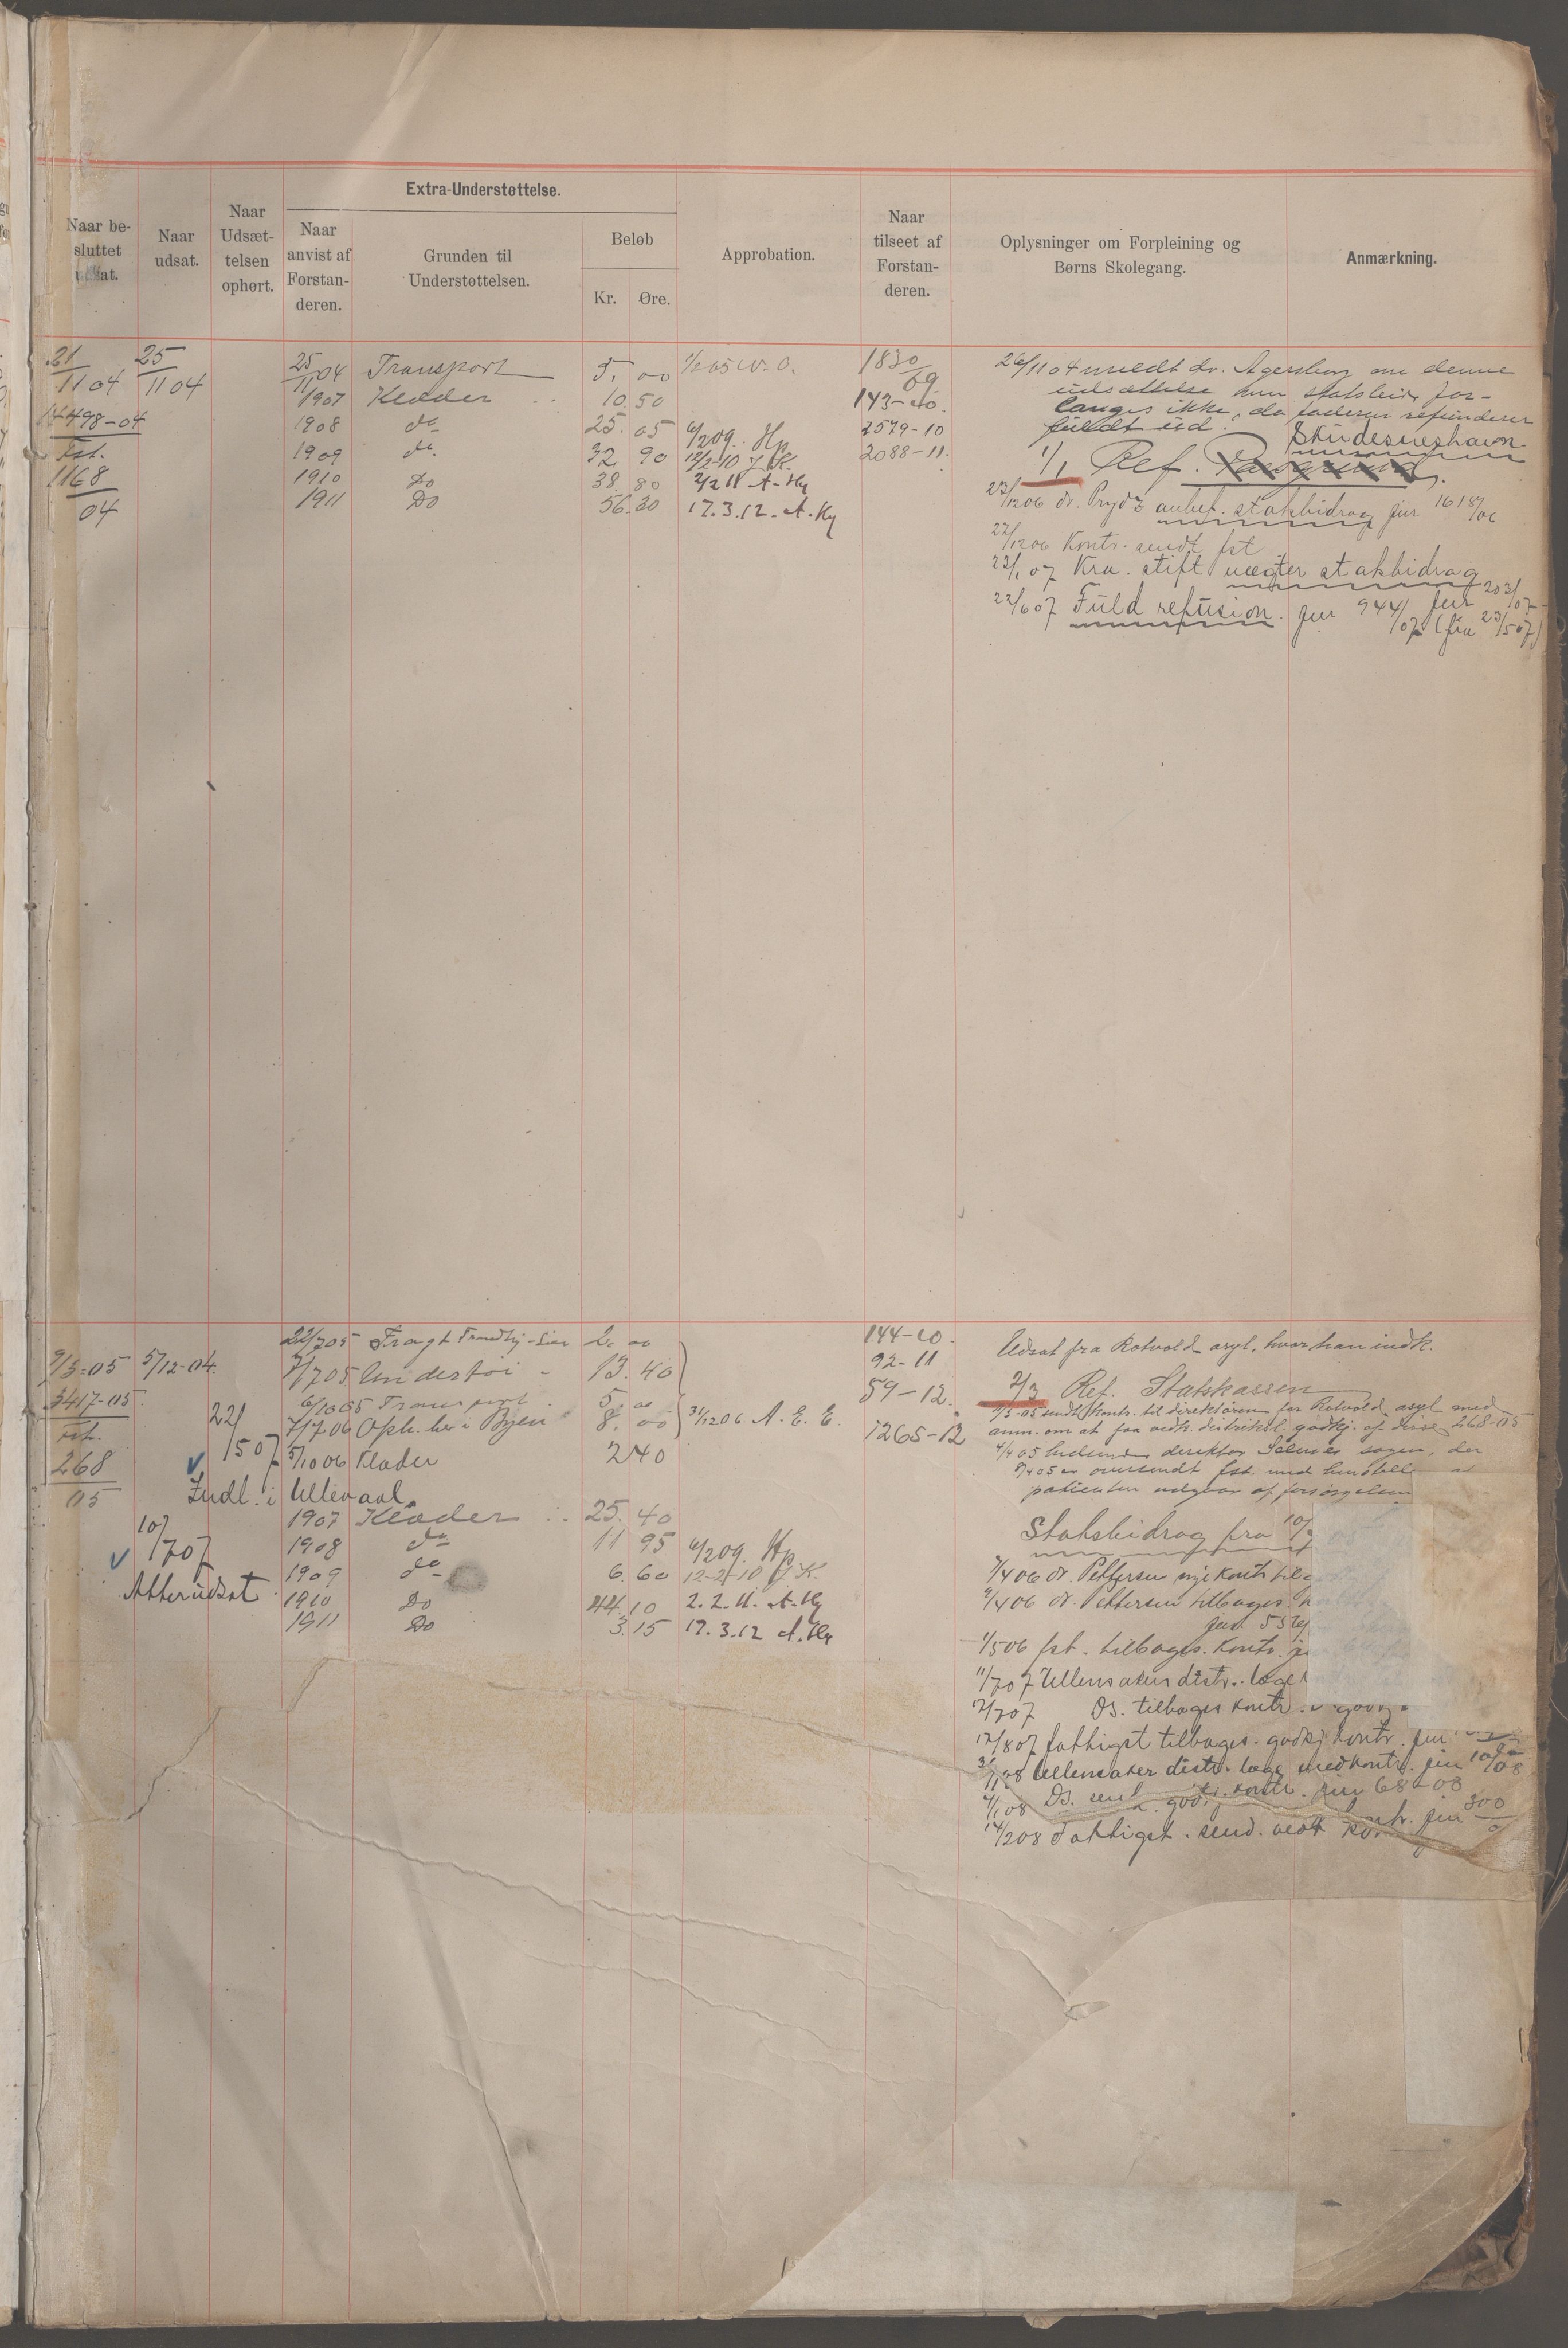 Extra-Understøttelse.
Naar be-
sluttet
udsat.
Naar
udsat.
Naar
Udsæt-
telsen
ophørt.
Naar
anvist af
Forstan-
deren.
Grunden til
Understøttelsen.
Beløb
Kr.
Øre.
Approbation.
Naar
tilseet af
Forstan-
deren.
Oplysninger om Forpleining og
Børns Skolegang.
Anmærkning.
21/11 04 25/11 04 25/11 04 Transport 5. 00 1/2 05 W. O. 1830/09
1907 Klæder 10. 50 143-10.
14498-04 1908 do 25. 05 6/2 09. Hp 2579-10
Fst. 1909 do. 32 90 12/2-10 J.K. 2088-11.
1168/04 1910 Do 38. 80 2/2 11 A-Hg
1911 Do 56. 30 17.3.12-A.Hg
26/11 04 meldt dr. Agersborg om denne
udsættelse men statsbidr for-
langes ikke, da faderen refunderer
fuldt ud.
Skudesneshavn.
1/1 Ref.
23/12 06 dr. Prydz anbef. statsbidrag jur 1618/06
27/12 06 Kontr. sendt fst
22/1 07 Kra. stift nægter statsbidrag
jur 203/07
22/6 07 Fuld refusion. jur 944/07 (fra 23/5 07)
22/7 05 Fragt Trondhj-Lier 2. 00 144-10.
9/3-05 5/12-04. 7/7 05 Undertøi - 13. 40 92-11
3417-05. 6/10 05 Transport 5. 00 59-12.
fst. 22/1 507 7/7 06 Oph. her i Byen 8. 00 31/12 06 A. E. E. 1265-12
268/05 5/10 06 Klæder 2 40
Indl. i Ullevaal.
10/707 1907 Klæder 25. 40
1908 do 11 95 6/2 09. Hp
Atter udsat 1909 do 6. 60 12-2-10 J.K.
1910 Do 44. 10 2.2.11. A-Hg
1911 Do 3. 15 17.3.12 A.Hg
Udsat fra Rotvold asyl, hvor han indk.
2/3 Ref. Statskassen
9/3-05 sendt kontr. til direktøren for Rotvold asyl med
anm. om at faa vedk. distriktsl. godkj. af disse 268-05
4/4 05 indsender direktør Selmer sagen, der
8/4 05 er oversendt fst. med henstille at
patienten udgaar af forsørgelsen
Statsbidrag fra 10/
7/4 06 dr. Pettersen nye kontr til
9/4 06 dr. Pettersen tilbages.
jur.
1/5 06 fst. tilbages. Kontr.
11/7 07 Ullensaker distr. læge
17/7 07 Ds. tilbages kontr.
17/8 07 fattigst tilbages. godkj kontr. jur
3/1 08 Ullensaker distr. læge med kontr. jur 10/08
4/1 08 Ds. send. godkj. kontr. jur 68-08
14/2 08 Fattigst. send. vedt kontr. jur 300